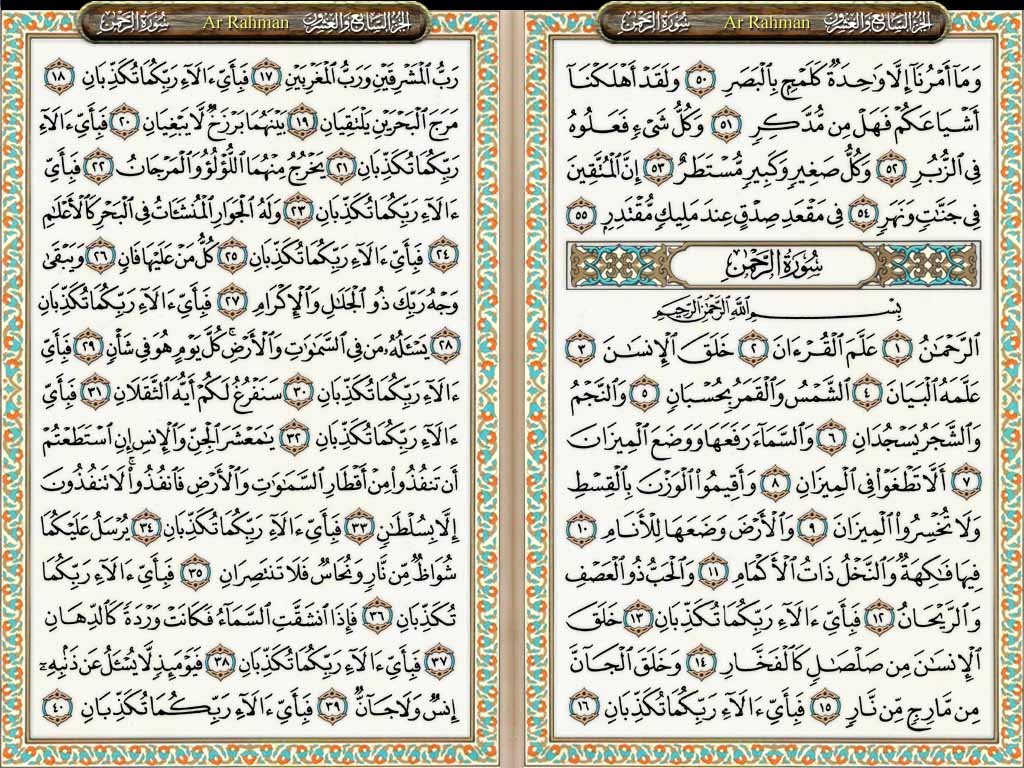 الجزء السابع والعشرون Ar Rahman سورة الرحمن
وَمَآ أَمْرُنَآ إِلَّا وَٰحِدَةٌ كَلَمْحٍۭ بِٱلْبَصَرِ ٥٠ وَلَقَدْ أَهْلَكْنَآ
أَشْيَاعَكُمْ فَهَلْ مِن مُّدَّكِرٍ ٥١ وَكُلُّ شَىْءٍ فَعَلُوهُ
فِى ٱلزُّبُرِ ٥٢ وَكُلُّ صَغِيرٍ وَكَبِيرٍ مُّسْتَطَرٌ ٥٣ إِنَّ ٱلْمُتَّقِينَ
فِى جَنَّٰتٍ وَنَهَرٍ ٥٤ فِى مَقْعَدِ صِدْقٍ عِندَ مَلِيكٍ مُّقْتَدِرٍۭ ٥٥
سُورَةُ الرَّحْمَٰن
بِسْمِ ٱللَّهِ ٱلرَّحْمَٰنِ ٱلرَّحِيمِ
ٱلرَّحْمَٰنُ ١ عَلَّمَ ٱلْقُرْءَانَ ٢ خَلَقَ ٱلْإِنسَٰنَ ٣
عَلَّمَهُ ٱلْبَيَانَ ٤ ٱلشَّمْسُ وَٱلْقَمَرُ بِحُسْبَانٍ ٥ وَٱلنَّجْمُ
وَٱلشَّجَرُ يَسْجُدَانِ ٦ وَٱلسَّمَآءَ رَفَعَهَا وَوَضَعَ ٱلْمِيزَانَ
٧ أَلَّا تَطْغَوْا۟ فِى ٱلْمِيزَانِ ٨ وَأَقِيمُوا۟ ٱلْوَزْنَ بِٱلْقِسْطِ
وَلَا تُخْسِرُوا۟ ٱلْمِيزَانَ ٩ وَٱلْأَرْضَ وَضَعَهَا لِلْأَنَامِ ١٠
فِيهَا فَٰكِهَةٌ وَٱلنَّخْلُ ذَاتُ ٱلْأَكْمَامِ ١١ وَٱلْحَبُّ ذُو ٱلْعَصْفِ
وَٱلرَّيْحَانُ ١٢ فَبِأَىِّ ءَالَآءِ رَبِّكُمَا تُكَذِّبَانِ ١٣ خَلَقَ
ٱلْإِنسَٰنَ مِن صَلْصَٰلٍ كَٱلْفَخَّارِ ١٤ وَخَلَقَ ٱلْجَآنَّ
مِن مَّارِجٍ مِّن نَّارٍ ١٥ فَبِأَىِّ ءَالَآءِ رَبِّكُمَا تُكَذِّبَانِ ١٦
الجزء السابع والعشرون Ar Rahman سورة الرحمن
رَبُّ ٱلْمَشْرِقَيْنِ وَرَبُّ ٱلْمَغْرِبَيْنِ ١٧ فَبِأَىِّ ءَالَآءِ رَبِّكُمَا تُكَذِّبَانِ ١٨
مَرَجَ ٱلْبَحْرَيْنِ يَلْتَقِيَانِ ١٩ بَيْنَهُمَا بَرْزَخٌ لَّا يَبْغِيَانِ ٢٠ فَبِأَىِّ ءَالَآءِ
رَبِّكُمَا تُكَذِّبَانِ ٢١ يَخْرُجُ مِنْهُمَا ٱللُّؤْلُؤُ وَٱلْمَرْجَانُ ٢٢ فَبِأَىِّ
ءَالَآءِ رَبِّكُمَا تُكَذِّبَانِ ٢٣ وَلَهُ ٱلْجَوَارِ ٱلْمُنشَـَٔاتُ فِى ٱلْبَحْرِ كَٱلْأَعْلَٰمِ
٢٤ فَبِأَىِّ ءَالَآءِ رَبِّكُمَا تُكَذِّبَانِ ٢٥ كُلُّ مَنْ عَلَيْهَا فَانٍ ٢٦ وَيَبْقَىٰ
وَجْهُ رَبِّكَ ذُو ٱلْجَلَٰلِ وَٱلْإِكْرَامِ ٢٧ فَبِأَىِّ ءَالَآءِ رَبِّكُمَا تُكَذِّبَانِ
٢٨ يَسْـَٔلُهُۥ مَن فِى ٱلسَّمَٰوَٰتِ وَٱلْأَرْضِ ۚ كُلَّ يَوْمٍ هُوَ فِى شَأْنٍ ٢٩ فَبِأَىِّ
ءَالَآءِ رَبِّكُمَا تُكَذِّبَانِ ٣٠ سَنَفْرُغُ لَكُمْ أَيُّهَ ٱلثَّقَلَانِ ٣١ فَبِأَىِّ
ءَالَآءِ رَبِّكُمَا تُكَذِّبَانِ ٣٢ يَٰمَعْشَرَ ٱلْجِنِّ وَٱلْإِنسِ إِنِ ٱسْتَطَعْتُمْ
أَن تَنفُذُوا۟ مِنْ أَقْطَارِ ٱلسَّمَٰوَٰتِ وَٱلْأَرْضِ فَٱنفُذُوا۟ ۚ لَا تَنفُذُونَ
إِلَّا بِسُلْطَٰنٍ ٣٣ فَبِأَىِّ ءَالَآءِ رَبِّكُمَا تُكَذِّبَانِ ٣٤ يُرْسَلُ عَلَيْكُمَا
شُوَاظٌ مِّن نَّارٍ وَنُحَاسٌ فَلَا تَنتَصِرَانِ ٣٥ فَبِأَىِّ ءَالَآءِ رَبِّكُمَا
تُكَذِّبَانِ ٣٦ فَإِذَا ٱنشَقَّتِ ٱلسَّمَآءُ فَكَانَتْ وَرْدَةً كَٱلدِّهَانِ
٣٧ فَبِأَىِّ ءَالَآءِ رَبِّكُمَا تُكَذِّبَانِ ٣٨ فَيَوْمَئِذٍ لَّا يُسْـَٔلُ عَن ذَنۢبِهِۦٓ
إِنسٌ وَلَا جَآنٌّ ٣٩ فَبِأَىِّ ءَالَآءِ رَبِّكُمَا تُكَذِّبَانِ ٤٠